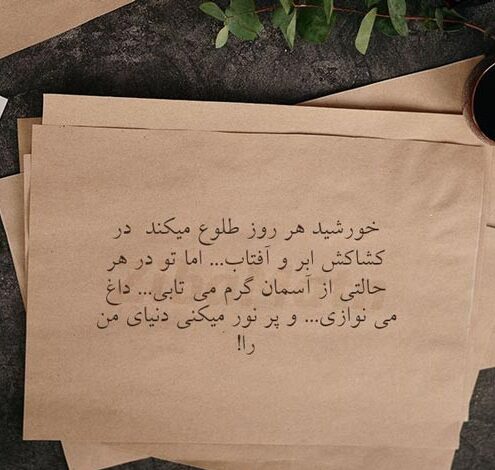 خورشید هر روز طلوع میکند در
کشاکش ابر و آفتاب... اما تو در هر
حالتی از آسمان گرم می تابی... داغ
می نوازی... و پر نور میکنی دنیای من
را!